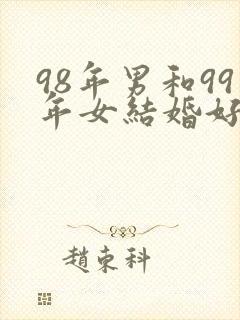 98年男和99
年女結婚好
趙東科